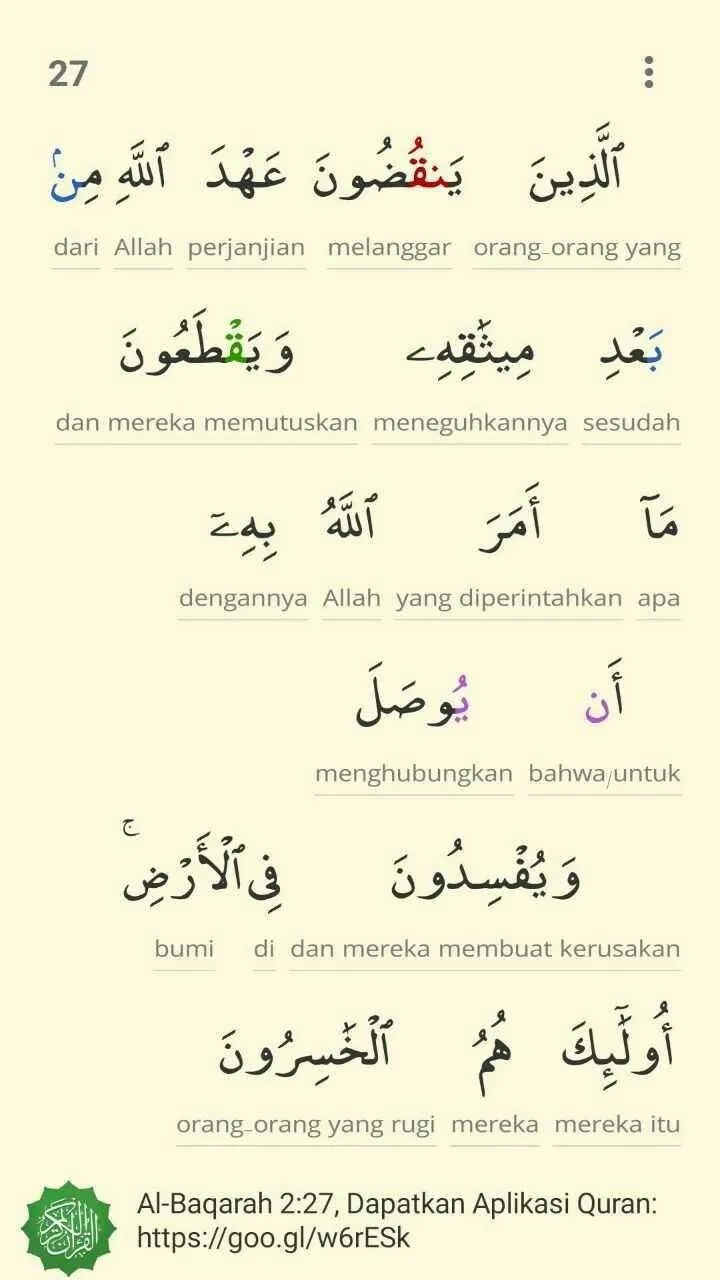 27
ٱلَّذِينَ يَنقُضُونَ عَهْدَ ٱللَّهِ مِنۢ
dari Allah perjanjian melanggar orang-orang yang
بَعْدِ مِيثَٰقِهِۦ وَيَقْطَعُونَ
dan mereka memutuskan meneguhkannya sesudah
مَآ أَمَرَ ٱللَّهُ بِهِۦٓ
dengannya Allah yang diperintahkan apa
أَن يُوصَلَ
menghubungkan bahwa/untuk
وَيُفْسِدُونَ فِى ٱلْأَرْضِ ۚ
bumi di dan mereka membuat kerusakan
أُو۟لَٰٓئِكَ هُمُ ٱلْخَٰسِرُونَ
orang-orang yang rugi mereka mereka itu
Al-Baqarah 2:27, Dapatkan Aplikasi Quran:
https://goo.gl/w6rESk